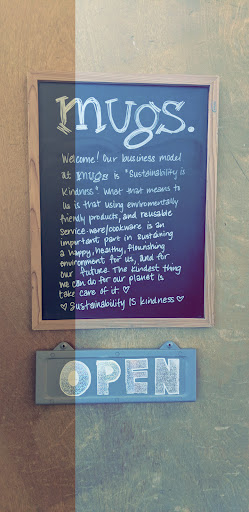 mugs.
Welcome! Our business model
at mugs is "Sustainability is
Kindness". What that means to
us is that using enviromentally
friendly products, and reusable
service-ware/cookware is an
important part in sustaining
a happy, healthy, flourishing
environment for us, and for
our future. The kindest thing
we can do for our planet is
take care of it. ♡
♡ Sustainability IS kindness ♡
OPEN